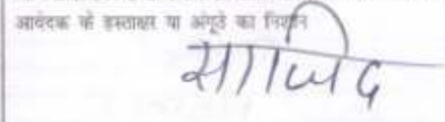 आवेदक के हस्ताक्षर या अंगूठे का निशान
साजिद